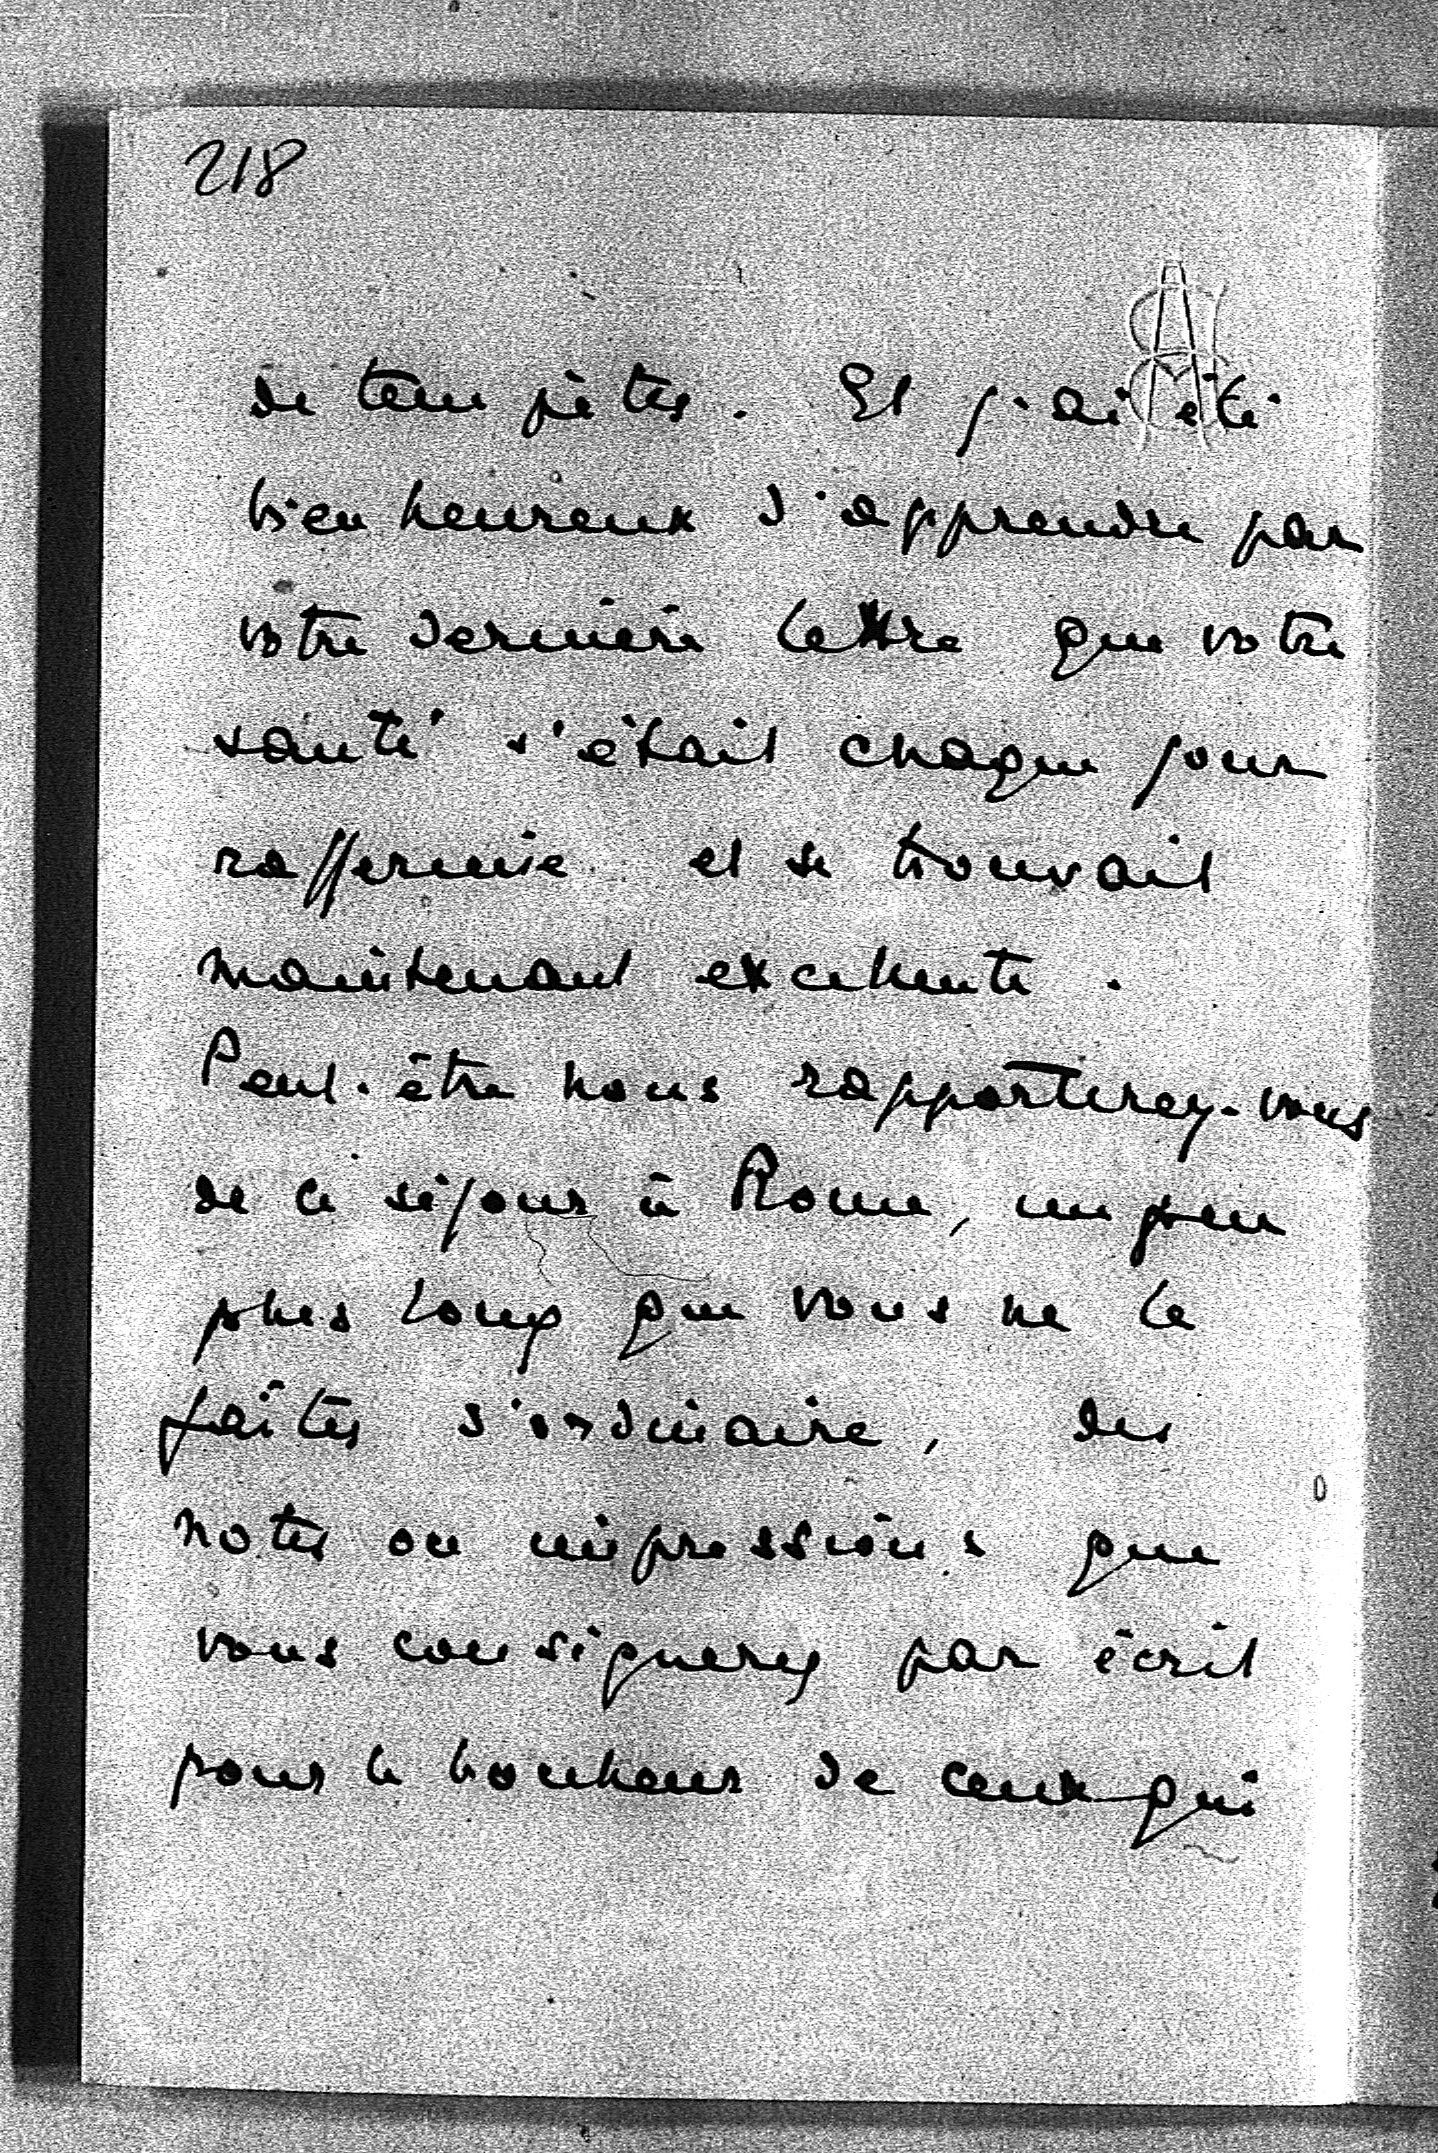 218
de tempêtes. Et j'ai été
bien heureux d'apprendre par
votre dernière lettre que votre
santé s'était chaque jour
raffermie et se trouvait
maintenant excellente.
Peut-être nous rapporterez-vous
de ce séjour à Rome, un peu
plus long que vous ne le
faîtes d'ordinaire, des
notes ou impressions que
vous consignerez par écrit
pour le bonheur de ceux qui